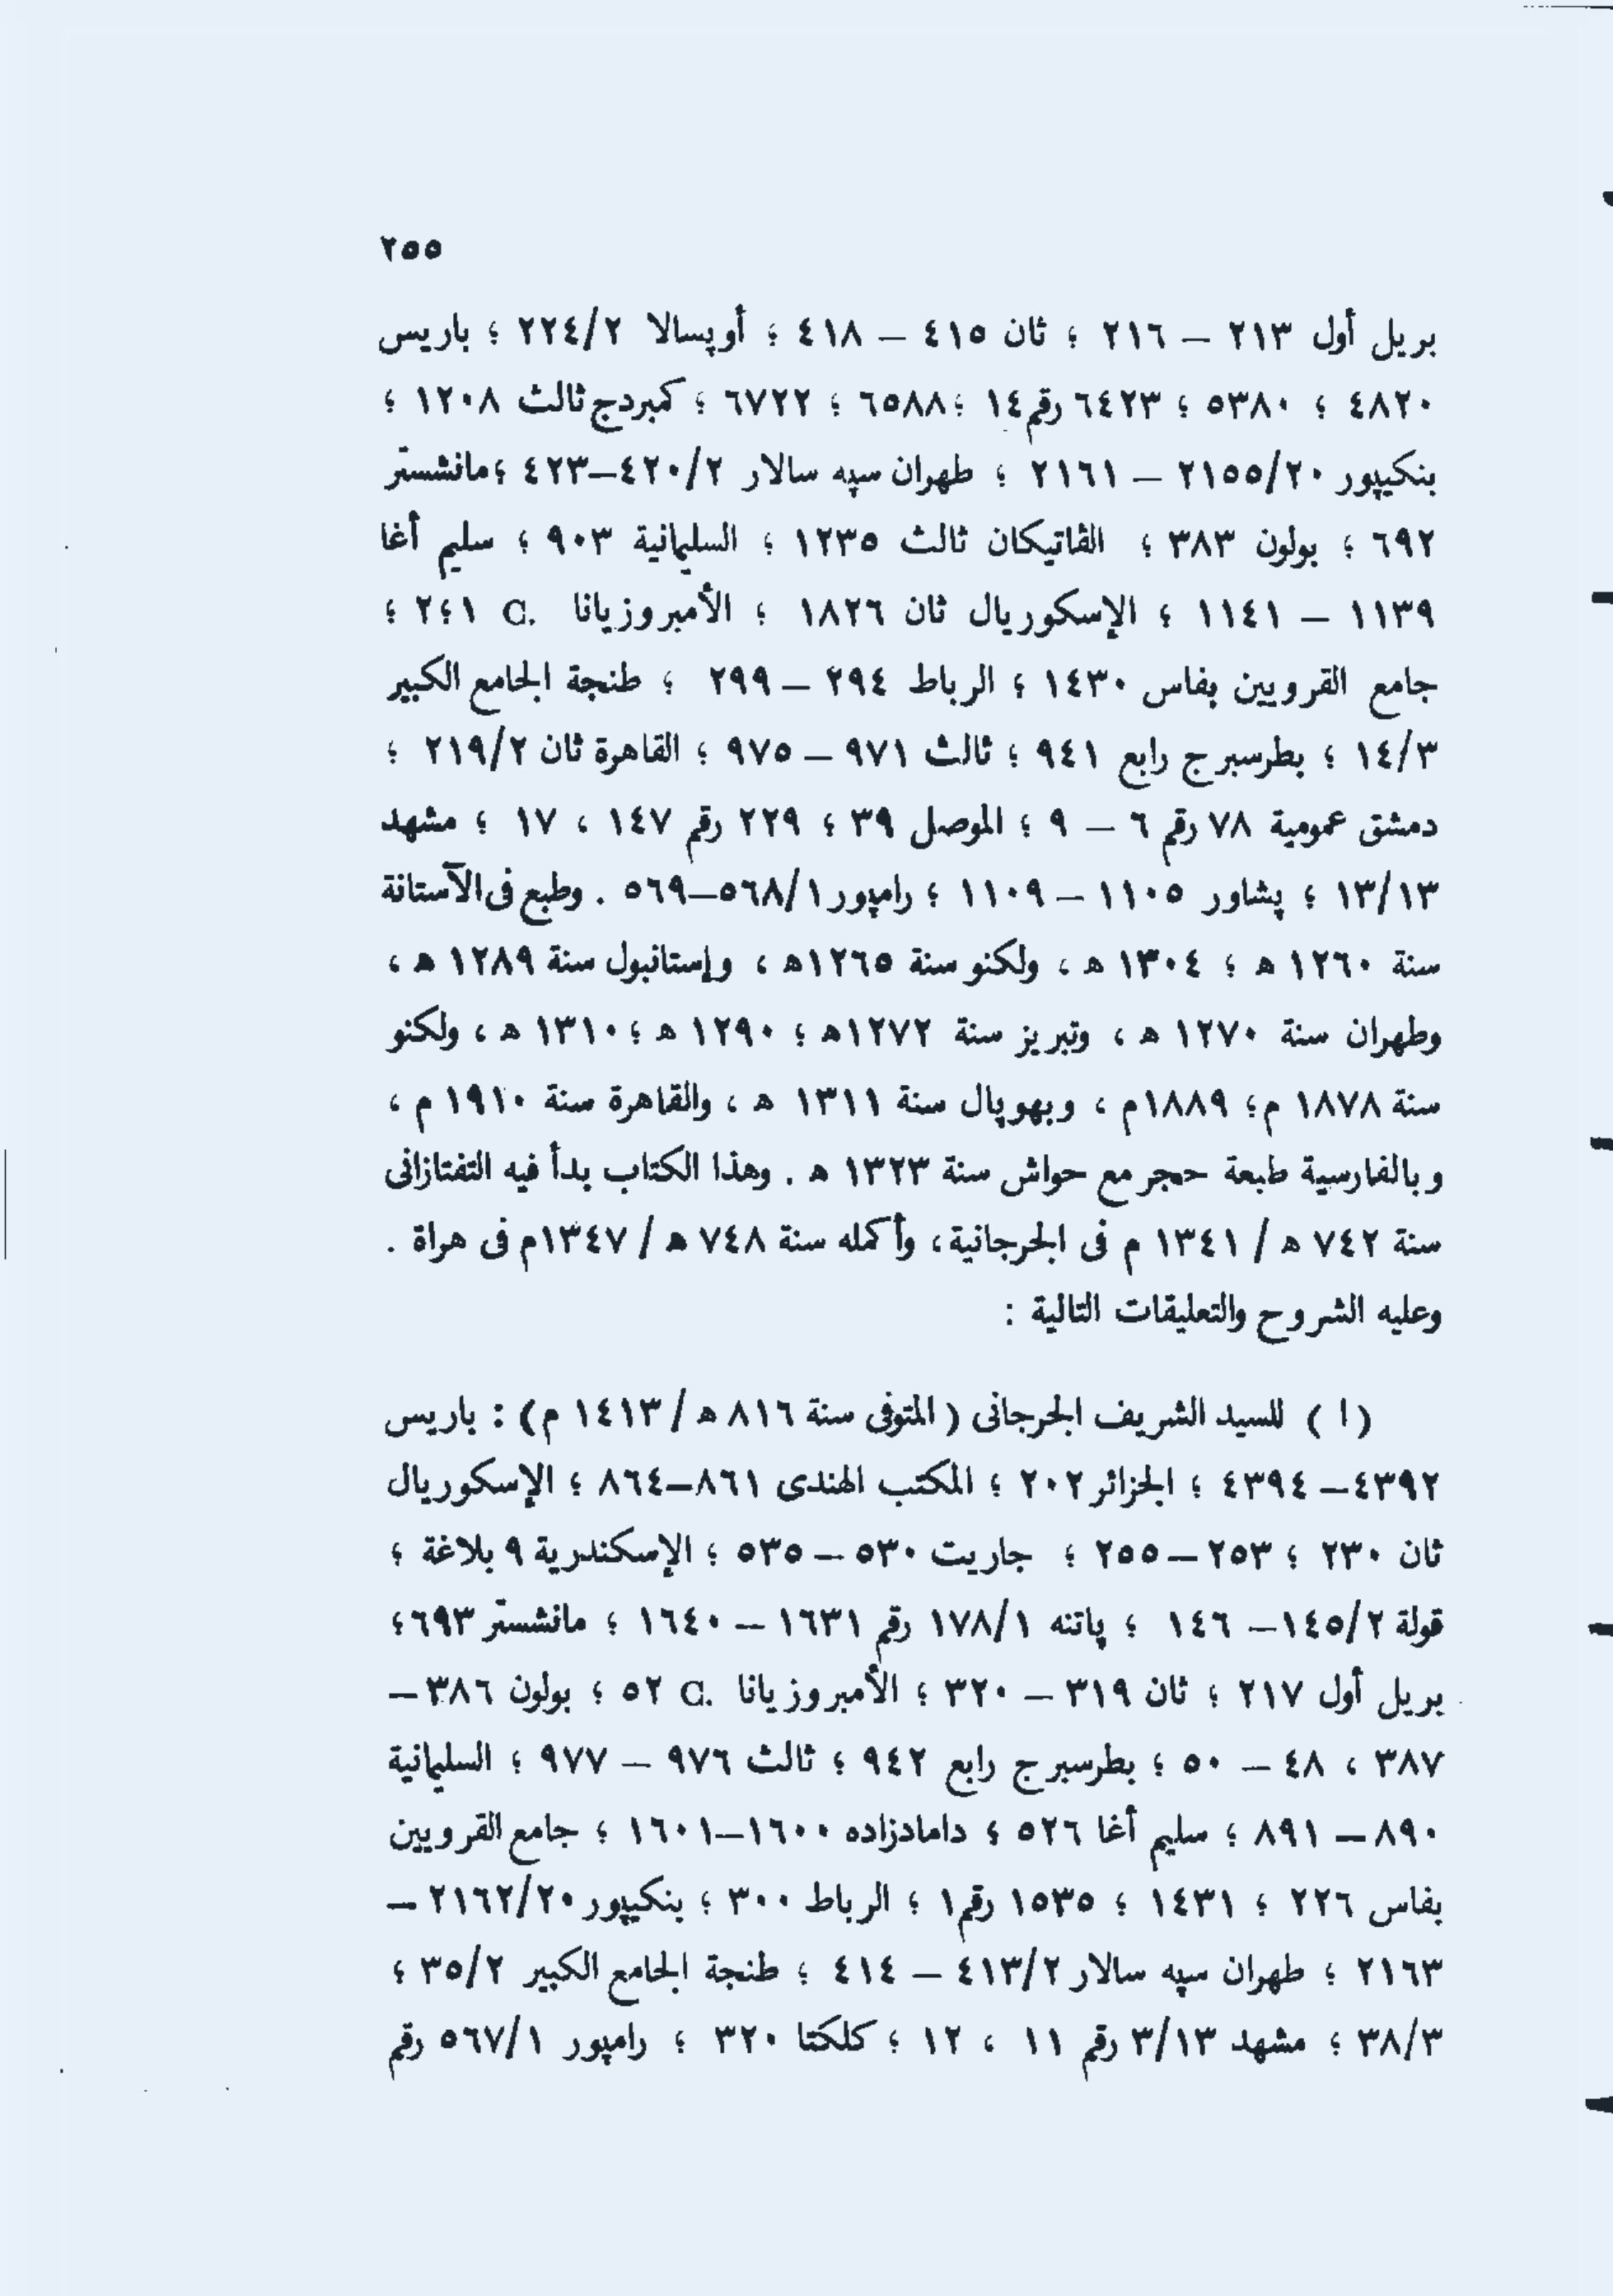 ٢٥٥
بريل أول ٢١٣ – ٢١٦ ؛ ثان ٤١٥ – ٤١٨ ؛ أوپسالا ٢٢٤/٢ ؛ باريس
٤٨٢٠ ؛ ٥٣٨٠ ؛ ٦٤٢٣ رقم ١٤ ؛ ٦٥٨٨ ؛ ٦٧٢٢ ؛ كمبردج ثالث ١٢٠٨ ؛
بنكيپور ٢١٥٥/٢٠ – ٢١٦١ ؛ طهران سپه سالار ٤٢٠/٢–٤٢٣ ؛ مانشستر
٦٩٢ ؛ بولون ٣٨٣ ؛ الڤاتيكان ثالث ١٢٣٥ ؛ السليمانية ٩٠٣ ؛ سليم أغا
١١٣٩ – ١١٤١ ؛ الإسكوريال ثان ١٨٢٦ ؛ الأمبروزيانا C. ١؛٢ ؛
جامع القرويين بفاس ١٤٣٠ ؛ الرباط ٢٩٤ – ٢٩٩ ؛ طنجة الجامع الكبير
١٤/٣ ؛ بطرسبرج رابع ٩٤١ ؛ ثالث ٩٧١ – ٩٧٥ ؛ القاهرة ثان ٢١٩/٢ ؛
دمشق عمومية ٧٨ رقم ٦ – ٩ ؛ الموصل ٣٩ ؛ ٢٢٩ رقم ١٤٧ ، ١٧ ؛ مشهد
١٣/١٣ ؛ پشاور ١١٠٥ – ١١٠٩ ؛ رامپور ٥٦٨/١–٥٦٩ . وطبع فى الآستانة
سنة ١٢٦٠ ه ؛ ١٣٠٤ ه ، ولكنو سنة ١٢٦٥ه ، وإستانبول سنة ١٢٨٩ ه ،
وطهران سنة ١٢٧٠ ه ، وتبريز سنة ١٢٧٢ه ؛ ١٢٩٠ ه ؛ ١٣١٠ ه ، ولكنو
سنة ١٨٧٨ م ؛ ١٨٨٩م ، وبهوپال سنة ١٣١١ ه ، والقاهرة سنة ١٩١٠ م ،
وبالفارسية طبعة حجر مع حواش سنة ١٣٢٣ ه . وهذا الكتاب بدأ فيه التفتازانى
سنة ٧٤٢ ه / ١٣٤١ م فى الجرجانية ، وأكمله سنة ٧٤٨ ه / ١٣٤٧م فى هراة .
وعليه الشروح والتعليقات التالية :
( ا ) للسيد الشريف الجرجانى ( المتوفى سنة ٨١٦ ه / ١٤١٣ م ) : باريس
٤٣٩٢– ٤٣٩٤ ؛ الجزائر ٢٠٢ ؛ المكتب الهندى ٨٦١–٨٦٤ ؛ الإسكوريال
ثان ٢٣٠ ؛ ٢٥٣ – ٢٥٥ ؛ جاريت ٥٣٠ – ٥٣٥ ؛ الإسكندرية ٩ بلاغة ؛
قولة ١٤٥/٢– ١٤٦ ؛ پاتنه ١٧٨/١ رقم ١٦٣١ – ١٦٤٠ ؛ مانشستر ٦٩٣ ؛
بريل أول ٢١٧ ؛ ثان ٣١٩ – ٣٢٠ ؛ الأمبروزيانا C. ٥٢ ؛ بولون ٣٨٦ –
٣٨٧ ، ٤٨ – ٥٠ ؛ بطرسبرج رابع ٩٤٢ ؛ ثالث ٩٧٦ – ٩٧٧ ؛ السليمانية
٨٩٠ – ٨٩١ ؛ سليم أغا ٥٢٦ ؛ دامادزاده ١٦٠٠–١٦٠١ ؛ جامع القرويين
بفاس ٢٢٦ ؛ ١٤٣١ ؛ ١٥٣٥ رقم ١ ؛ الرباط ٣٠٠ ؛ بنكيپور ٢١٦٢/٢٠ –
٢١٦٣ ؛ طهران سپه سالار ٤١٣/٢ – ٤١٤ ؛ طنجة الجامع الكبير ٣٥/٢ ؛
٣٨/٣ ؛ مشهد ٣/١٣ رقم ١١ ، ١٢ ؛ كلكتا ٣٢٠ ؛ رامپور ٥٦٧/١ رقم